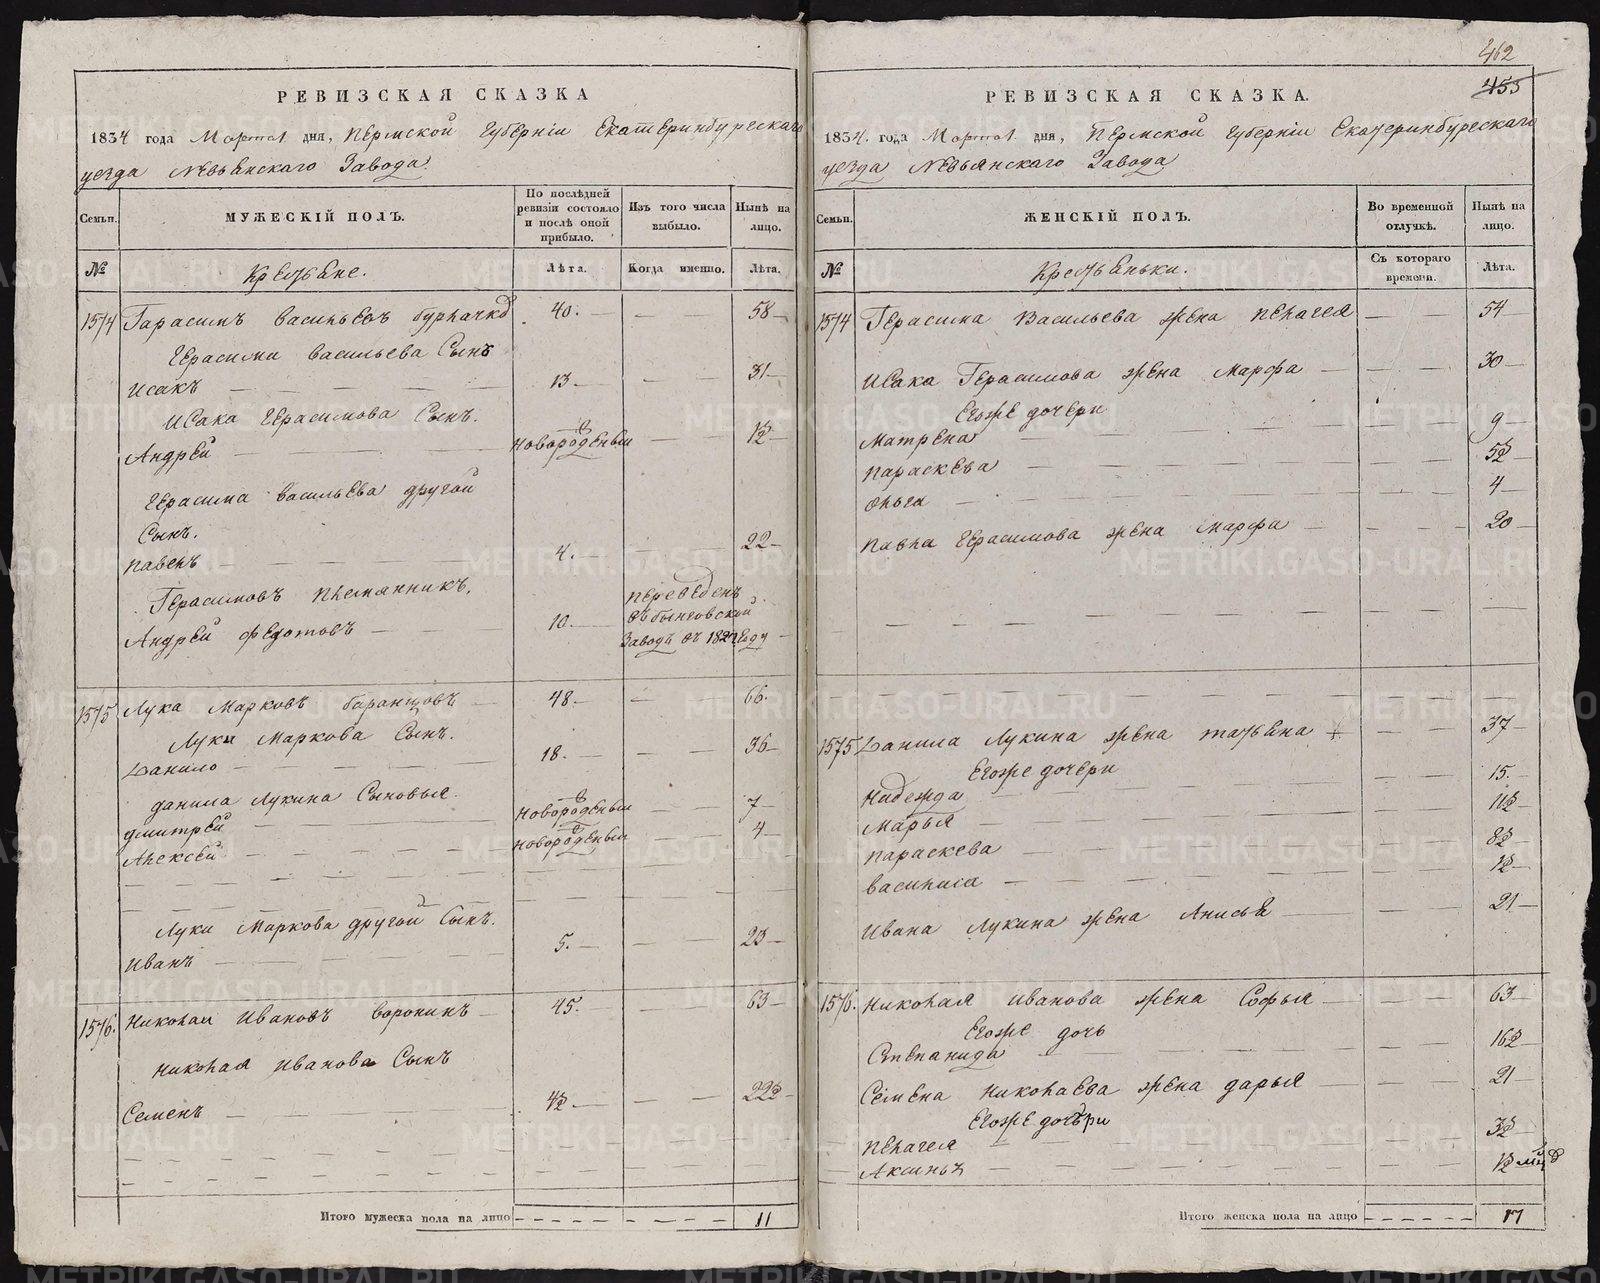 РЕВИЗСКАЯ СКАЗКА
1834 года Марта 1 дня, Пермской Губерніи Екатеринбурскаго
уезда Невьянскаго Завода.
Семьи.
МУЖЕСКІЙ ПОЛЪ.
По послѣдней ревизіи состояло и послѣ оной прибыло.
Изъ того числа выбыло.
Нынѣ на лицо.
№
Крестьяне.
Лѣта.
Когда именно.
Лѣта.
1574 Гарасимъ Васильевъ 40. 58
Герасима Васильева Сынъ
Исакъ 13 31
Исака Герасимова Сынъ.
Андрей новорожденный 1½
Герасима Васильева другой
Сынъ.
Павелъ 4. 22
Герасимовъ племянникъ,
Андрей Федотовъ 10. переведенъ въ Быньговский Заводъ въ 1827 году
1575 Лука Марковъ Баранцовъ 48. 66.
Луки Маркова Сынъ.
Данило 18. 36
Данила Лукина Сыновья.
Дмитрей новорожденный 7
Алексей новорожденный 4
Луки Маркова другой Сынъ.
Иванъ 5. 23
1576. Николай Ивановъ Воронинъ 45. 63
Николая Иванова Сынъ
Семенъ 4½. 22½
Итого мужеска пола на лицо 11
462
455
РЕВИЗСКАЯ СКАЗКА.
1834. года Марта 1 дня, Пермской Губерніи Екатеринбурскаго
уезда Невьянскаго Завода
Семьи.
ЖЕНСКІЙ ПОЛЪ.
Во временной отлучкѣ.
Нынѣ на лицо.
№
Крестьянки.
Съ котораго времени.
Лѣта.
1574 Герасима Васильева жена Пелагея 54
Исака Герасимова жена Марфа 30
Егоже дочери
Матрена 9
Параскева 5½
Ольга 4
Павла Герасимова жена Марфа 20
1575 Данила Лукина жена Татьяна 37
Егоже дочери
Надежда 15.
Марья 11½
Параскева 8½
Василиса 1½
Ивана Лукина жена Анисья 21
1576. Николая Иванова жена Софья 63
Егоже дочь
Степанида 16½
Семена Николаева жена Дарья 21
Егоже дочери
Пелагея 3½
Аксинья 1½
Итого женска пола на лицо 17
METRIKI.GASO-URAL.RU